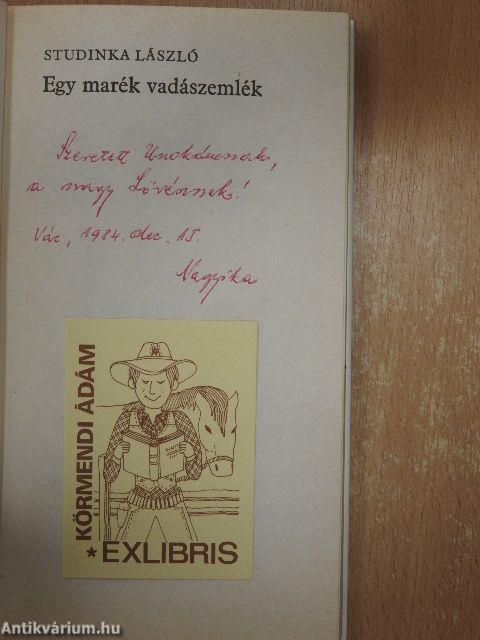 STUDINKA LÁSZLÓ
Egy marék vadászemlék
Szeretett Unokámnak,
a nagy Lövésznek!
Vác, 1984. dec. 15.
Nagyika
KÖRMENDI ÁDÁM
* EXLIBRIS
Antikvárium.hu